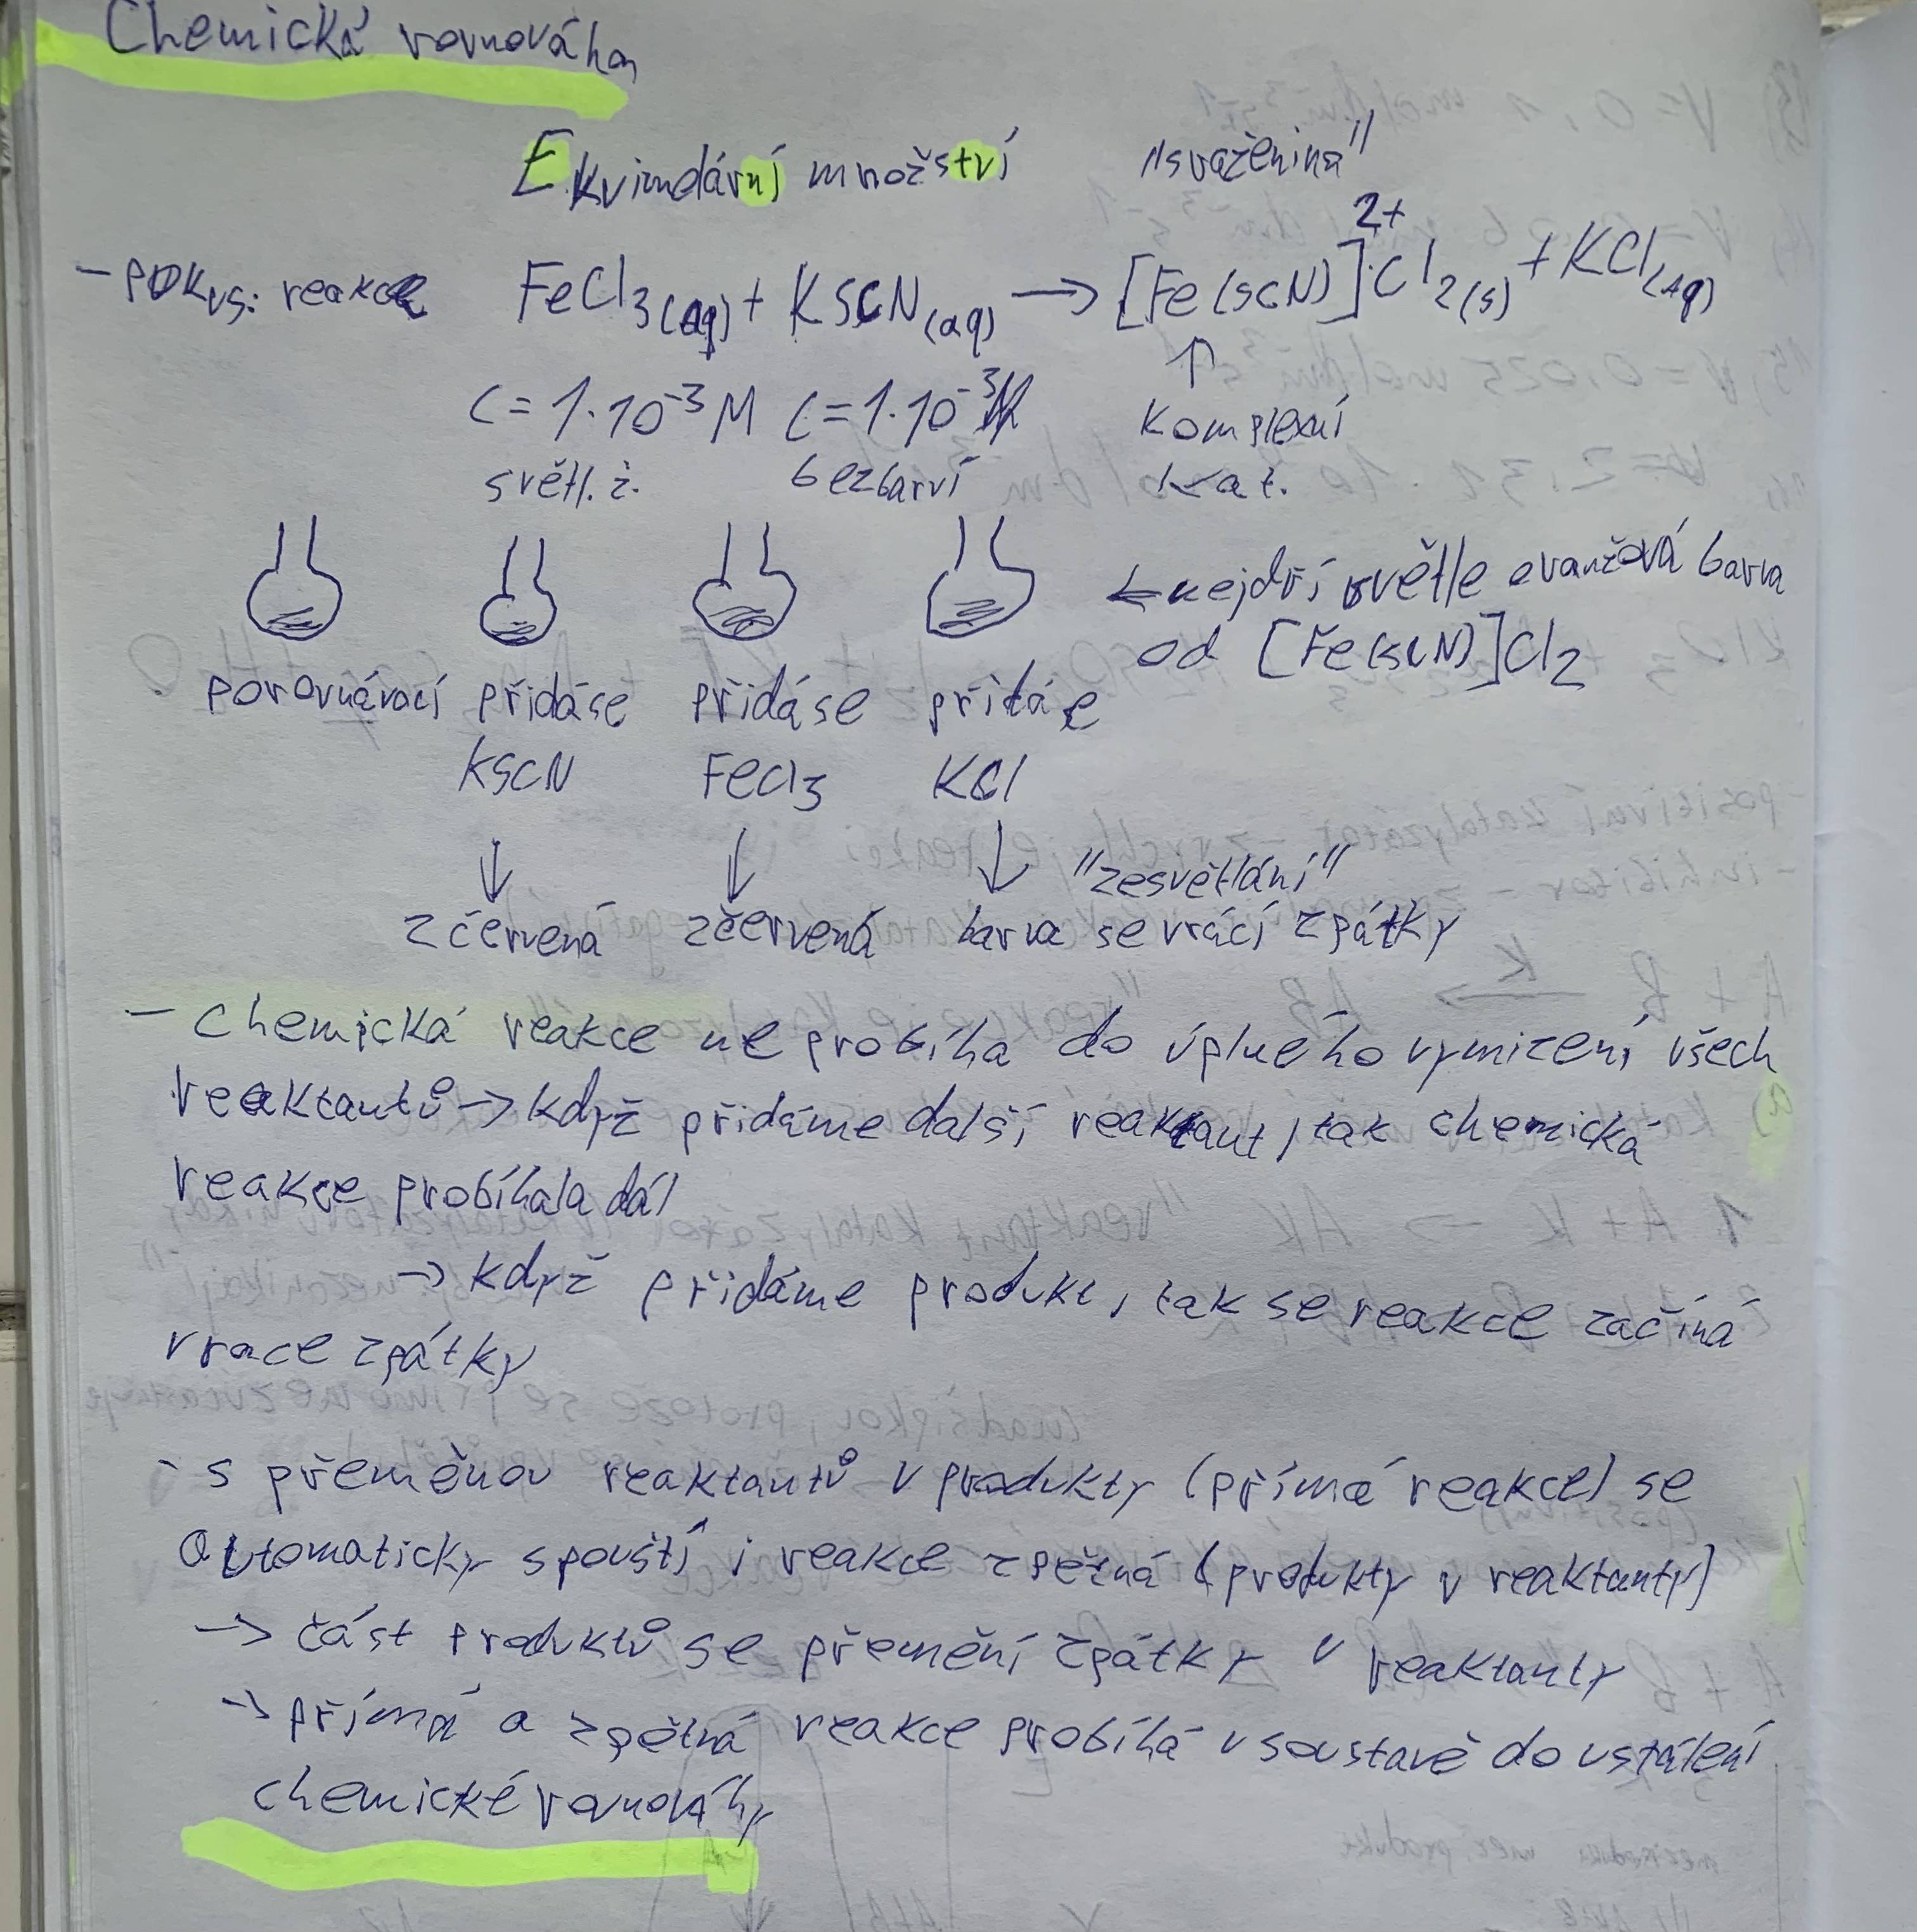 Chemická rovnováha
Ekvimolární množství "sraženina"
- pokus: reakce FeCl3(aq) + KSCN(aq) → [Fe(SCN)]2+Cl2(s) + KCl(aq)
c = 1·10^-3 M c = 1·10^-3 M ↑ komplexní
světl. ž. bezbarví kat.
← nejdří světle oranžová barva
od [Fe(SCN)]Cl2
porovnávací přidáse přidáse přidáe
KSCN FeCl3 KCl
↓ ↓ ↓ "zesvětlání"
zčervená zčervená barva se vrácí zpátky
- chemická reakce ne probíha do úplného vymizení všech
reaktantů → když přidáme další reaktant, tak chemická
reakce probíhala dál
→ když přidáme produkt, tak se reakce začíná
vrace zpátky
- s přeměnou reaktantů v produkty (přímá reakce) se
automaticky spouští i reakce zpětná (produkty v reaktanty)
→ část produktů se přemění zpátky v reaktanty
→ přímá a zpětná reakce probíhá v soustavě do ustálení
chemické rovnováhy